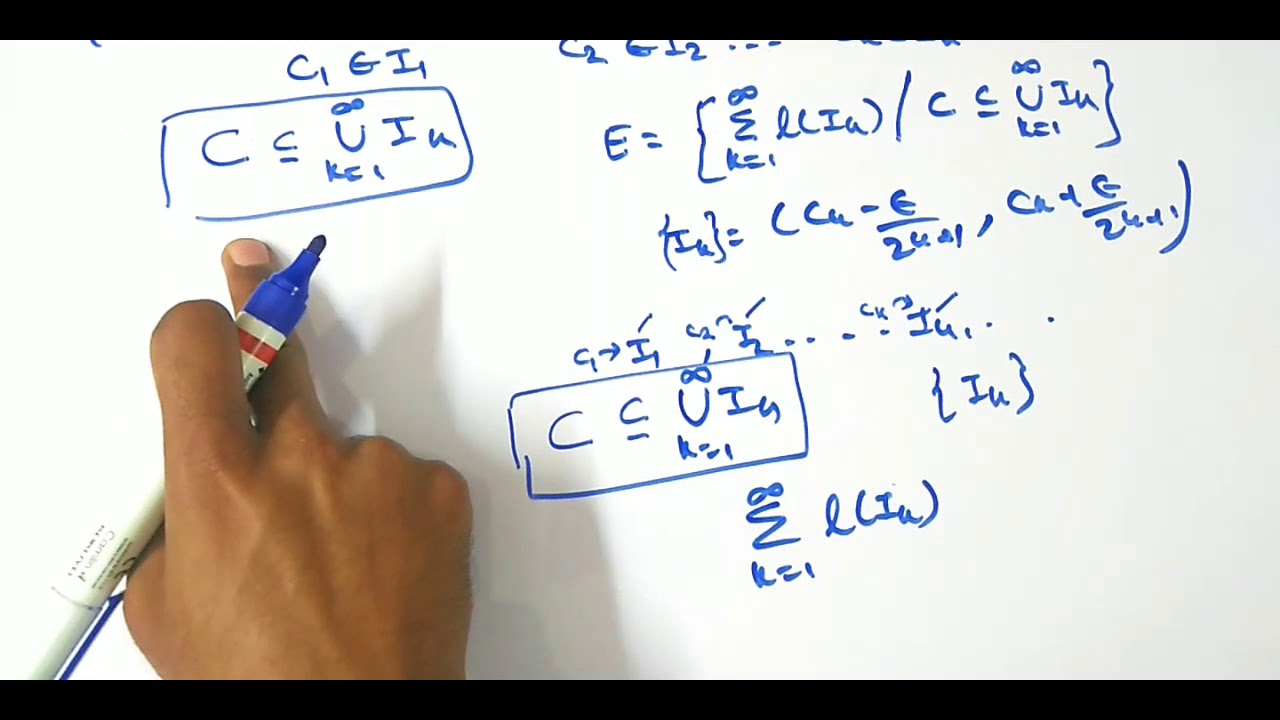 C₁ ∈ I₁
C ⊆ ∪_{k=1}^{∞} I_k
C₂ ∈ I₂ ...
E = { Σ_{k=1}^{∞} l(I_k) / C ⊆ ∪_{k=1}^{∞} I_k }
{I_k} = (C_k - ϵ/2^{k+1}, C_k + ϵ/2^{k+1})
C₁→I₁ C₂→I₂ ... C_k→I_k, . .
C ⊆ ∪_{k=1}^{∞} I_k
{I_k}
Σ_{k=1}^{∞} l(I_k)
Camlin